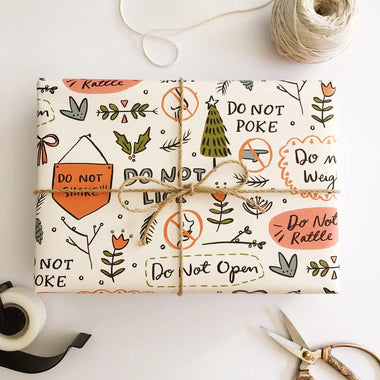 Rattle
DO NOT
POKE
DO NOT
SHAKE!!!
DO NOT
LI
Do n
Weig
Do Not
Rattle
DO NOT
POKE
Do Not Open